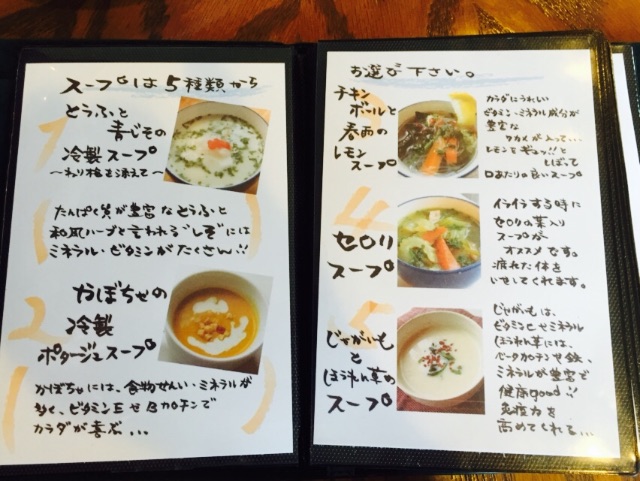 スープは5種類から
1
とうふと
青じその
冷製スープ
〜ねり梅を添えて〜
たんぱく質が豊富なとうふと
和風ハーブと言われる"しそ"には
ミネラル・ビタミンがたくさん!!
2
かぼちゃの
冷製
ポタージュスープ
かぼちゃには、食物せんい・ミネラルが
多く、ビタミンEとBカロチンで
カラダが喜ぶ...
お選び下さい。
3
チキン
ボールと
春雨の
レモン
スープ
カラダにうれしい
ビタミン・ミネラル成分が
豊富な
ワカメが入って...
レモンをギュッ!!と
しぼって
口あたりの良いスープ
4
セロリ
スープ
イライラする時に
セロリの葉入り
スープが
オススメです。
疲れた体を
いやしてくれます。
5
じゃがいもと
ほうれん草の
スープ
じゃがいもは、
ビタミンCとミネラル
ほうれん草には、
ベータカロチンと鉄、
ミネラルが豊富で
健康good!!
免疫力を
高めてくれる...